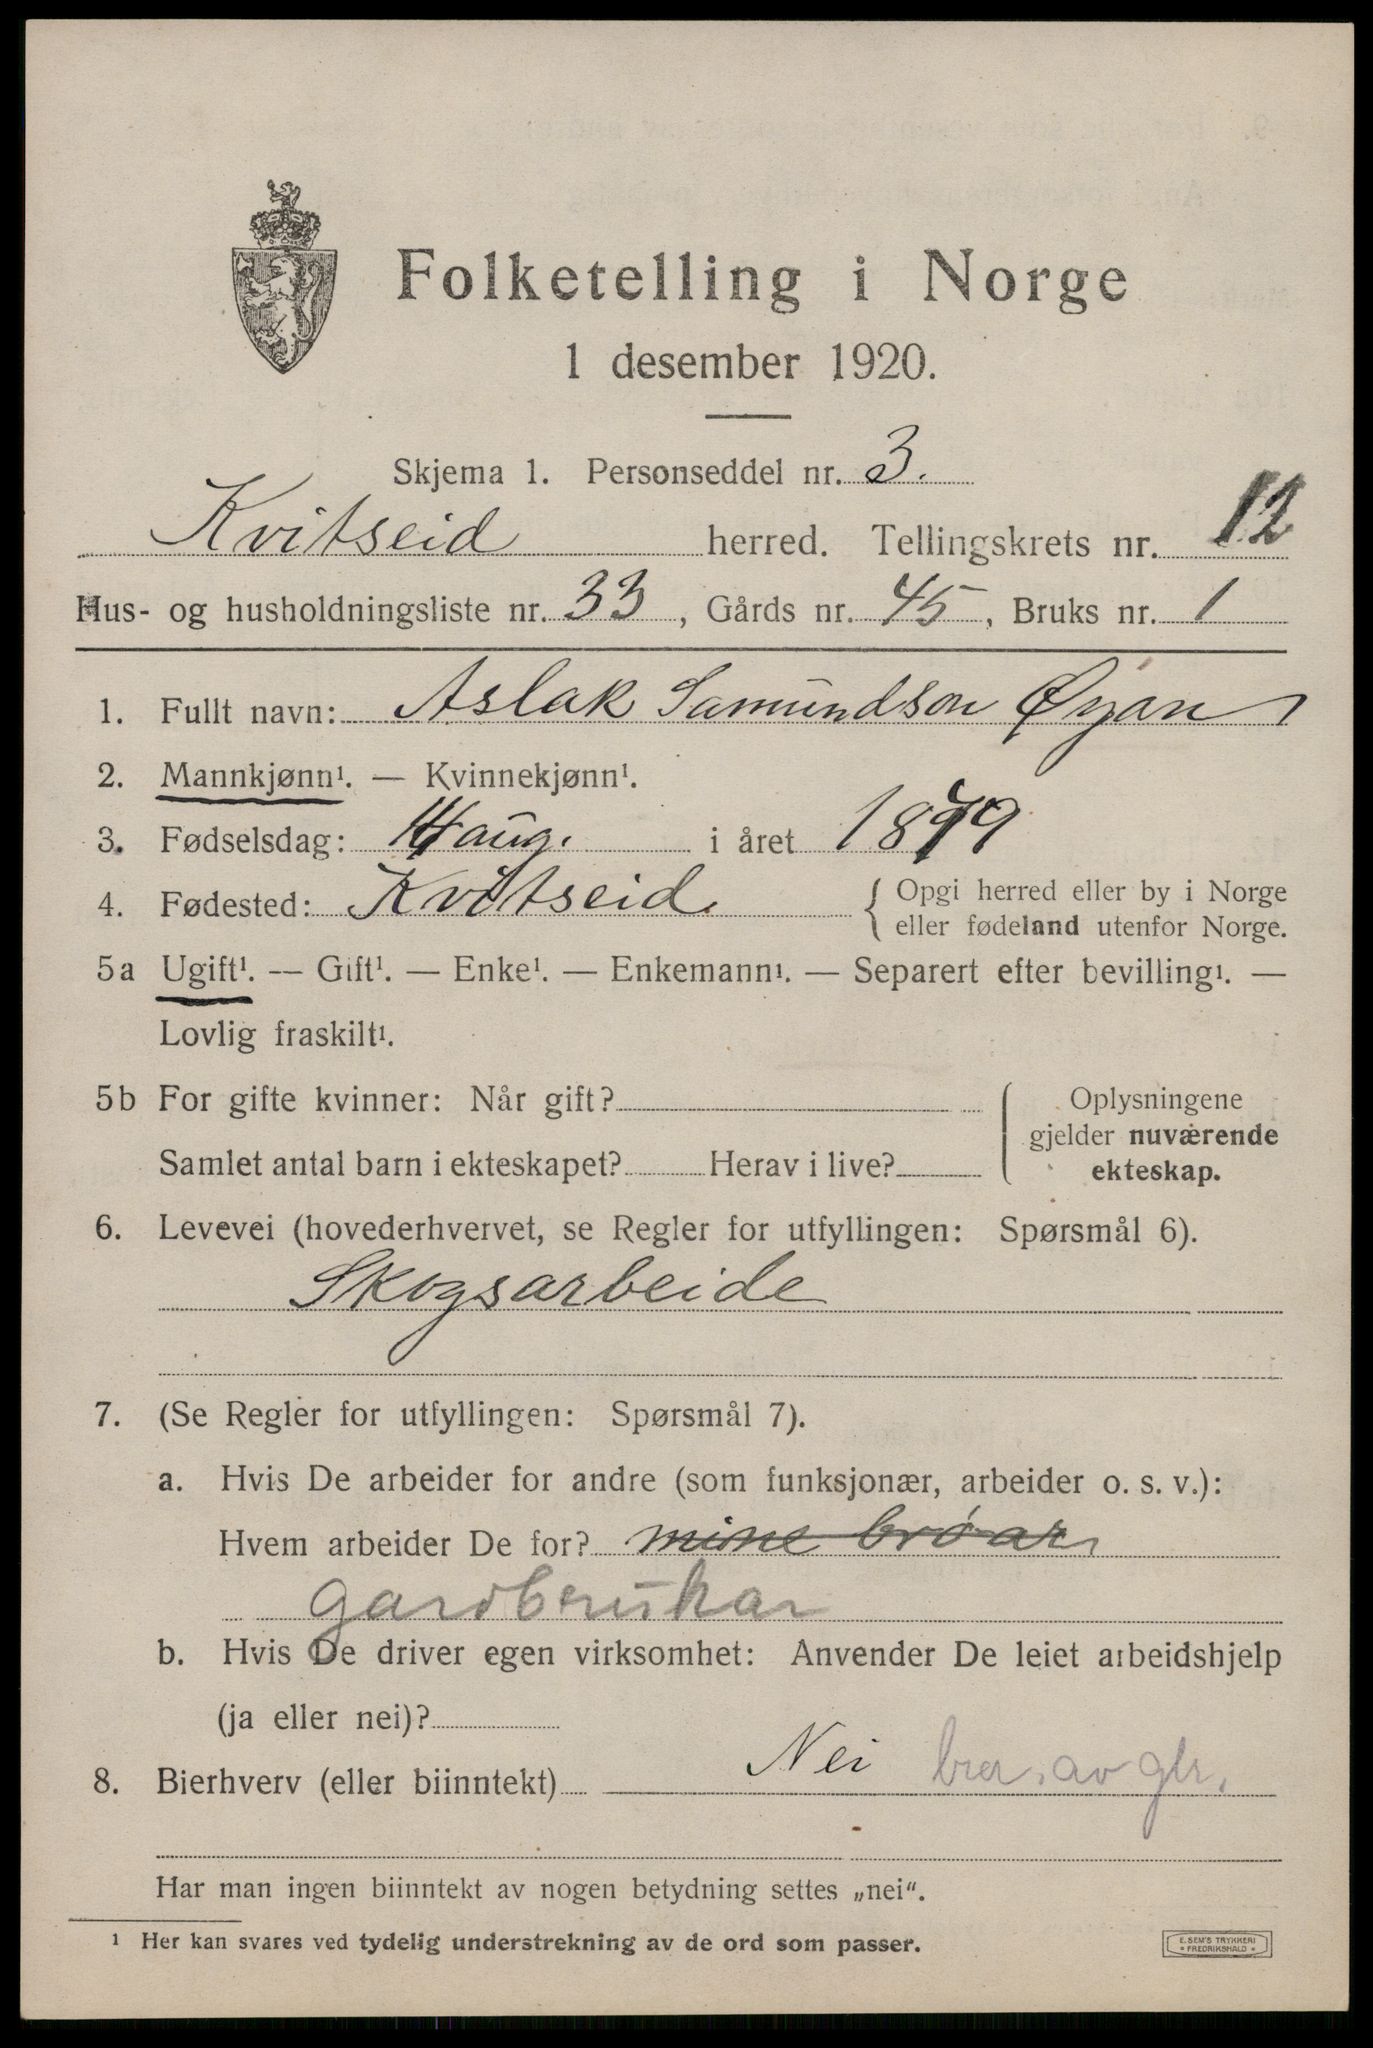 Folketelling i Norge
1 desember 1920.
Skjema 1. Personseddel nr. 3.
Kvitseid herred. Tellingskrets nr. 12
Hus- og husholdningsliste nr. 33, Gårds nr. 45, Bruks nr. 1
1. Fullt navn: Aslak Samundson Øyan
2. Mannkjønn¹. — Kvinnekjønn¹.
3. Fødselsdag: aug. i året 1879
4. Fødested: Kvitseid. { Opgi herred eller by i Norge
eller fødeland utenfor Norge.
5a Ugift¹. — Gift¹. — Enke¹. — Enkemann¹. — Separert efter bevilling¹. —
Lovlig fraskilt¹.
5b For gifte kvinner: Når gift?
Samlet antal barn i ekteskapet? Herav i live?
Oplysningene
gjelder nuværende
ekteskap.
6. Levevei (hovederhvervet, se Regler for utfyllingen: Spørsmål 6).
Skogsarbeide
7. (Se Regler for utfyllingen: Spørsmål 7).
a. Hvis De arbeider for andre (som funksjonær, arbeider o. s. v.):
Hvem arbeider De for? mine brøar
gardbrukar
b. Hvis De driver egen virksomhet: Anvender De leiet arbeidshjelp
(ja eller nei)?
8. Bierhverv (eller biinntekt) Nei av
Har man ingen biinntekt av nogen betydning settes „nei“.
¹ Her kan svares ved tydelig understrekning av de ord som passer.
E. SEM'S TRYKKERI
* FREDRIKSHALD *